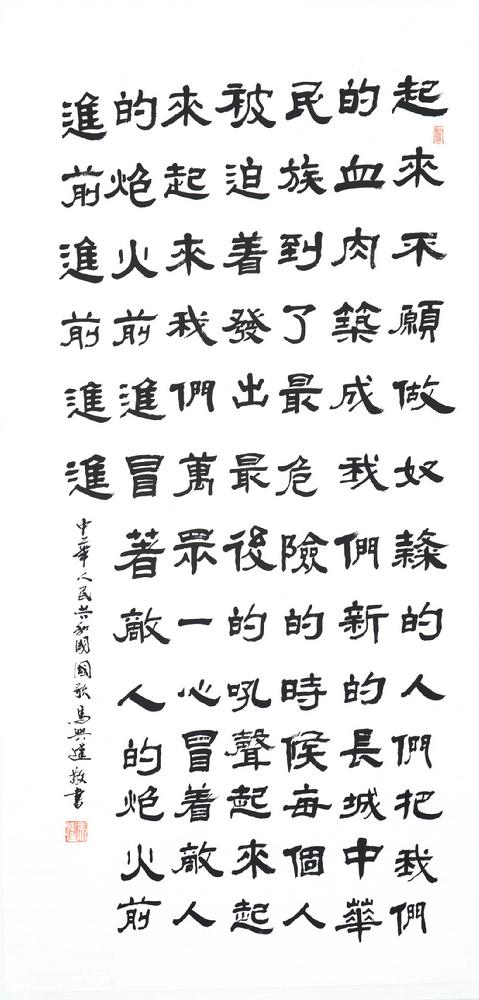 起來不願做奴隸的人們把我們
的血肉築成我們新的長城中華
民族到了最危險的時候每個人
被迫着發出最後的吼聲起來起
來起來我們萬眾一心冒着敵人
的炮火前進冒著敵人的炮火前
進前進前進進
中華人民共和國國歌 馬興敬書